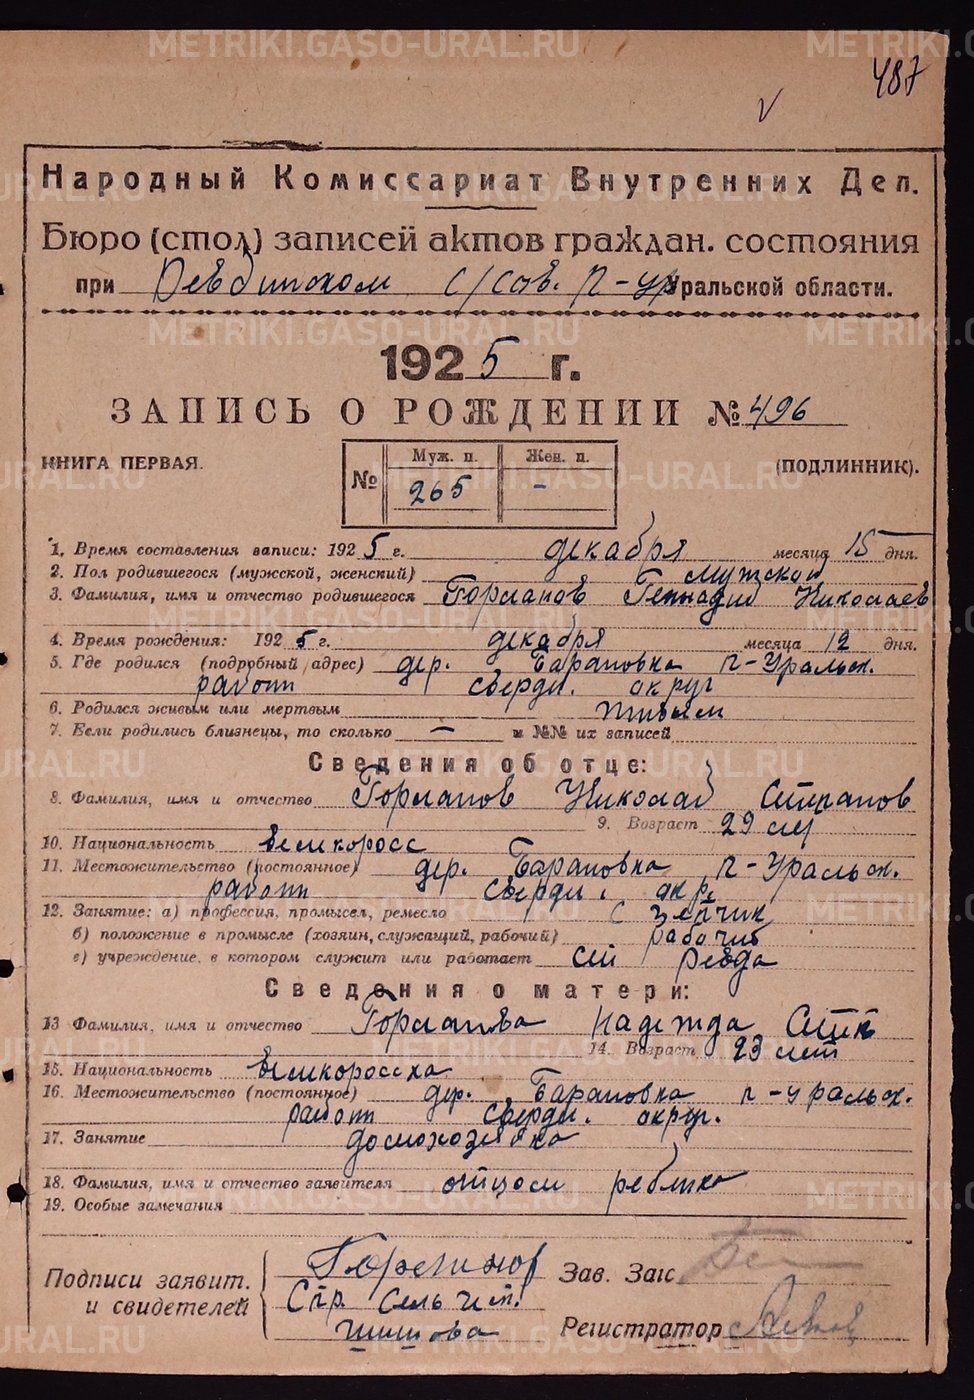 METRIKI.GASO-URAL.RU
487
Народный Комиссариат Внутренних Дел.
Бюро (стол) записей актов граждан. состояния
при Ревдинском с/сов. П-Ур Уральской области.
1925 г.
ЗАПИСЬ О РОЖДЕНИИ № 496
КНИГА ПЕРВАЯ.
Муж. п. Жен. п.
(ПОДЛИННИК).
№ 265 -
1. Время составления записи: 1925 г. декабря месяца 15 дня.
2. Пол родившегося (мужской, женский) мужской
3. Фамилия, имя и отчество родившегося Горманов Геннадий Николаев
4. Время рождения: 1925 г. декабря месяца 12 дня.
5. Где родился (подробный адрес) дер. Барановка П-Уральск.
район Свердл. округ
6. Родился живым или мертвым живым
7. Если родились близнецы, то сколько — и №№ их записей
Сведения об отце:
8. Фамилия, имя и отчество Горманов Николай Степанов
9. Возраст 29 лет
10. Национальность великоросс
11. Местожительство (постоянное) дер. Барановка П-Уральск.
район Свердл. окр.
12. Занятие: а) профессия, промысел, ремесло
б) положение в промысле (хозяин, служащий, рабочий) рабочий
в) учреждение, в котором служит или работает Ревда
Сведения о матери:
13 Фамилия, имя и отчество Горманова Надежда
14. Возраст 23 лет
15. Национальность великоросска
16. Местожительство (постоянное) дер. Барановка П-Уральск.
район Свердл. округ.
17. Занятие домохозяйка
18. Фамилия, имя и отчество заявителя отцом ребенка
19. Особые замечания
Подписи заявит.
и свидетелей
Зав. Загс
Регистратор